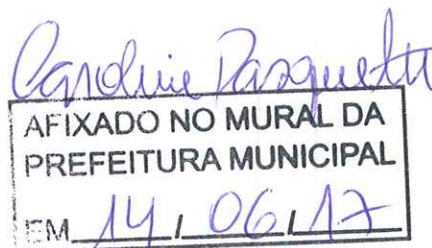 Caroline Pasquetti
AFIXADO NO MURAL DA
PREFEITURA MUNICIPAL
EM 14 / 06 / 17